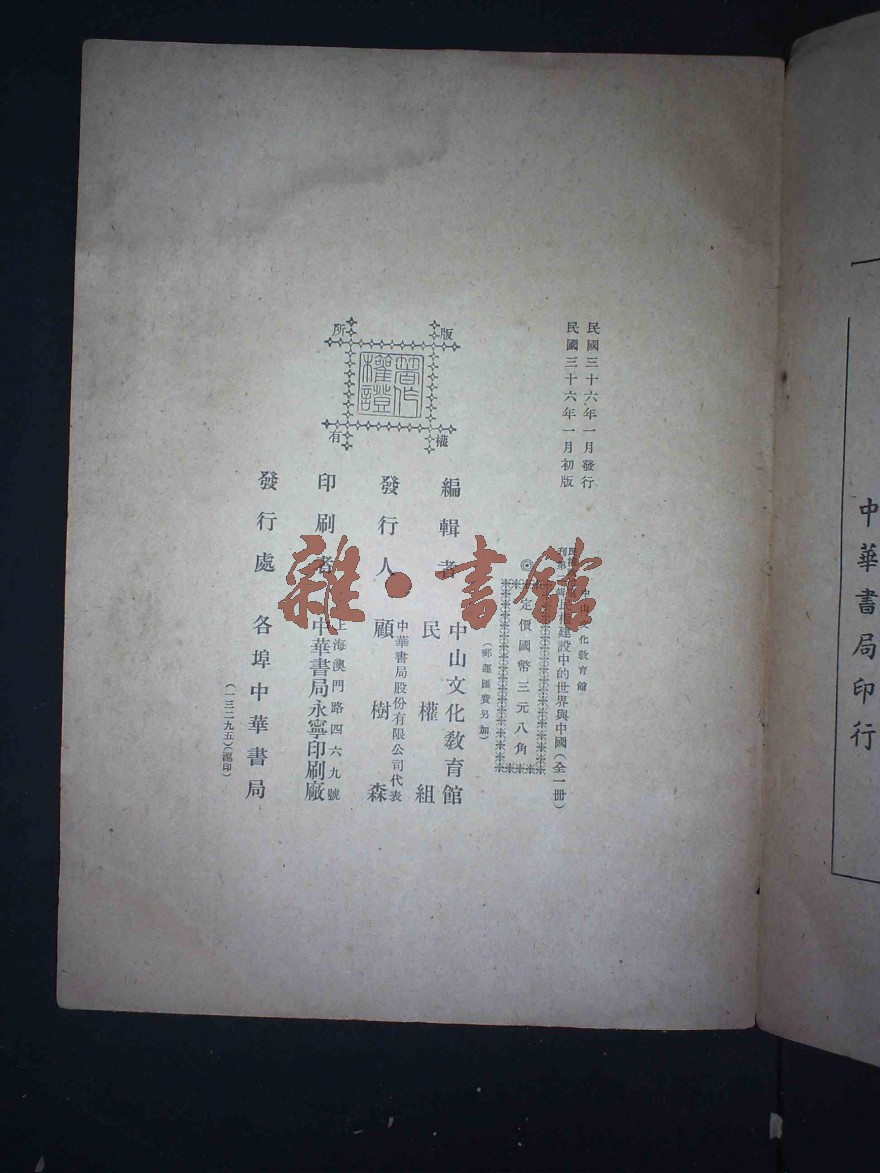 民國三十六年一月發行
民國三十六年一月初版
中山文化教育館
民
刊第
民權建設中的世界與中國(全一册)
◎定價國幣三元八角
(郵運匯費另加)
版權所有
著作權證
編輯者 中山文化教育館
民權組
發行人
中華書局股份有限公司代表
顧樹森
印刷者
上海澳門路四六九號
中華書局永寧印刷廠
發行處 各埠中華書局
(一三二九五)(滬印)
雜·書館
中華書局印行